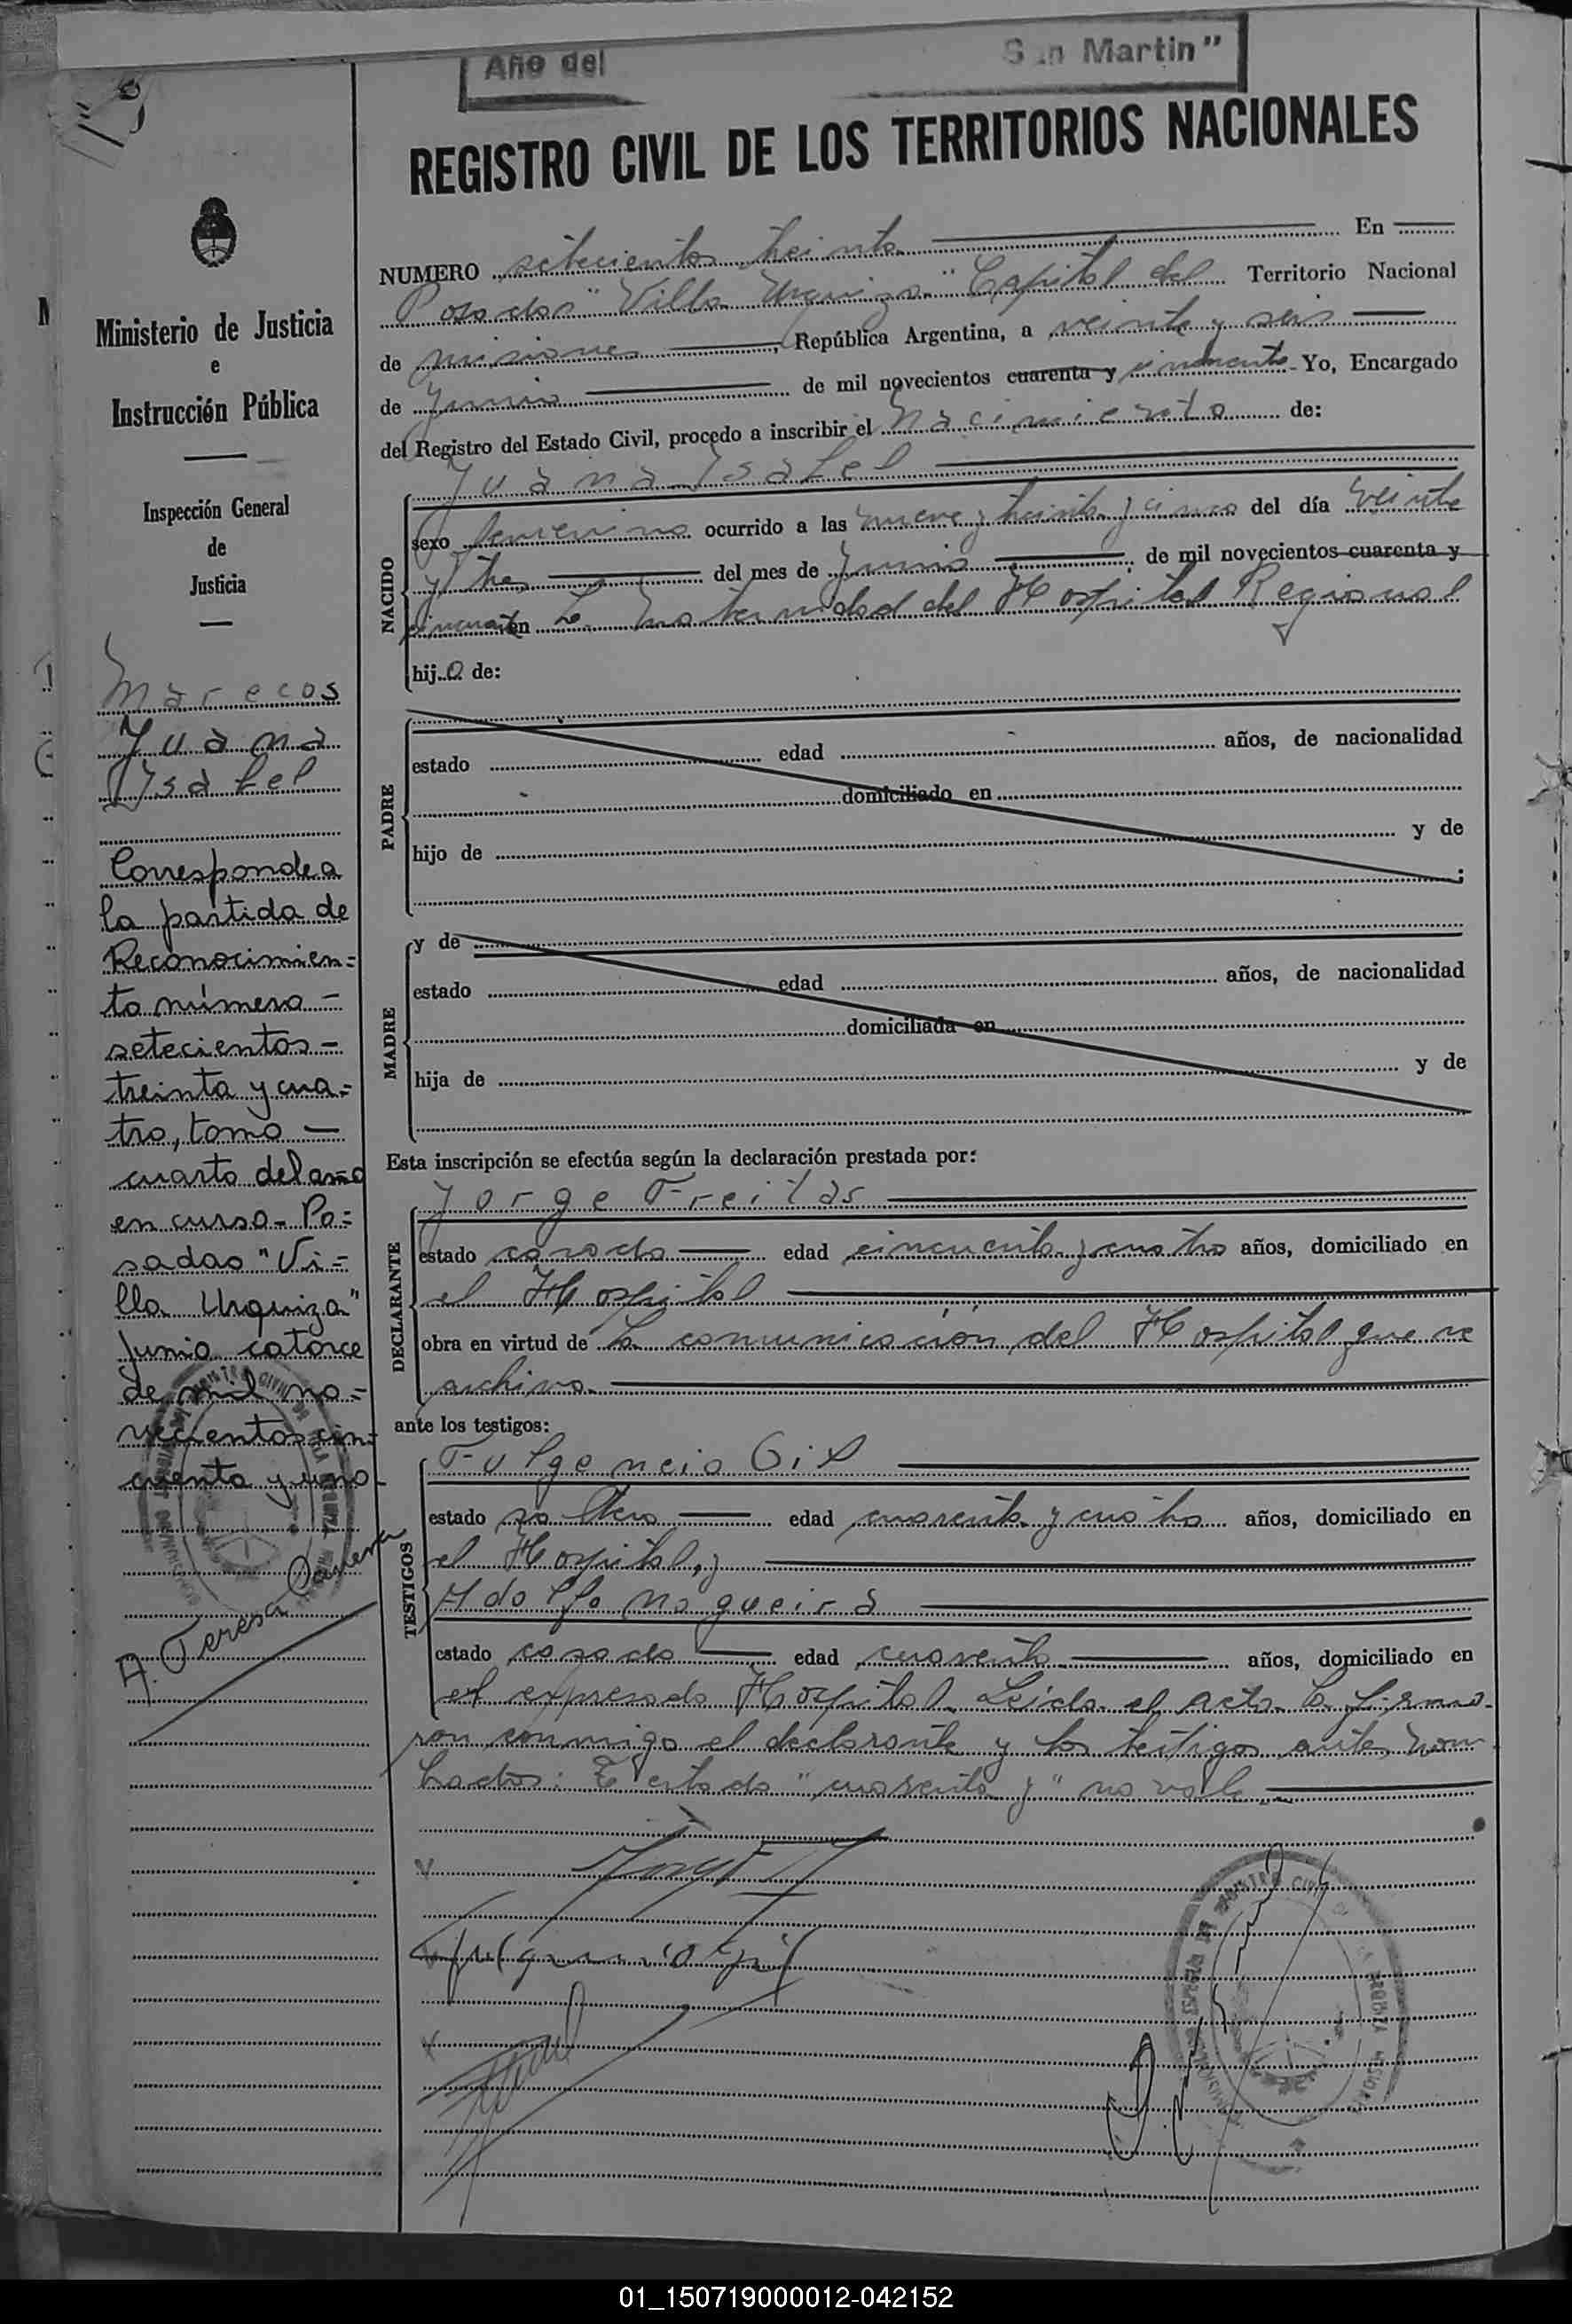 Año del San Martin"
REGISTRO CIVIL DE LOS TERRITORIOS NACIONALES
NUMERO setecientos treinta En
Posadas "Villa Urquiza" Capital del Territorio Nacional
de misiones, República Argentina, a veinte y seis
de Junio de mil novecientos cuarenta y cincuenta Yo, Encargado
del Registro del Estado Civil, procedo a inscribir el Nacimiento de:
NACIDO
Juana Isabel
sexo femenino ocurrido a las nueve y treinta y cinco del día veinte
y tres del mes de Junio de mil novecientos cuarenta y
cincuenta en La Maternidad del Hospital Regional
hija de:
PADRE
estado edad años, de nacionalidad
domiciliado en
hijo de y de
;
MADRE
y de
estado edad años, de nacionalidad
domiciliada en
hija de y de
Esta inscripción se efectúa según la declaración prestada por:
DECLARANTE
Jorge Freitas
estado casado edad cincuenta y cuatro años, domiciliado en
el Hospital
obra en virtud de la comunicación del Hospital que se
archiva.
ante los testigos:
TESTIGOS
Fulgencio Gil
estado soltero edad cuarenta y cuatro años, domiciliado en
el Hospital, y
Adolfo Nogueira
estado casado edad cuarenta años, domiciliado en
el expresado Hospital. Leída el acta la firma-
ron conmigo el declarante y los testigos antes nom-
brados: Testado "cuarenta y" no vale
Ministerio de Justicia
e
Instrucción Pública
Inspección General
de
Justicia
Marecos
Juana
Isabel
Corresponde a
la partida de
Reconocimien=
to número -
setecientos -
treinta y cua=
tro, tomo -
cuarto del año
en curso - Po=
sadas "Vi=
lla Urquiza"
Junio catorce
de mil no=
vecientos cin=
cuenta y uno.
A. Teresa
01_150719000012-042152